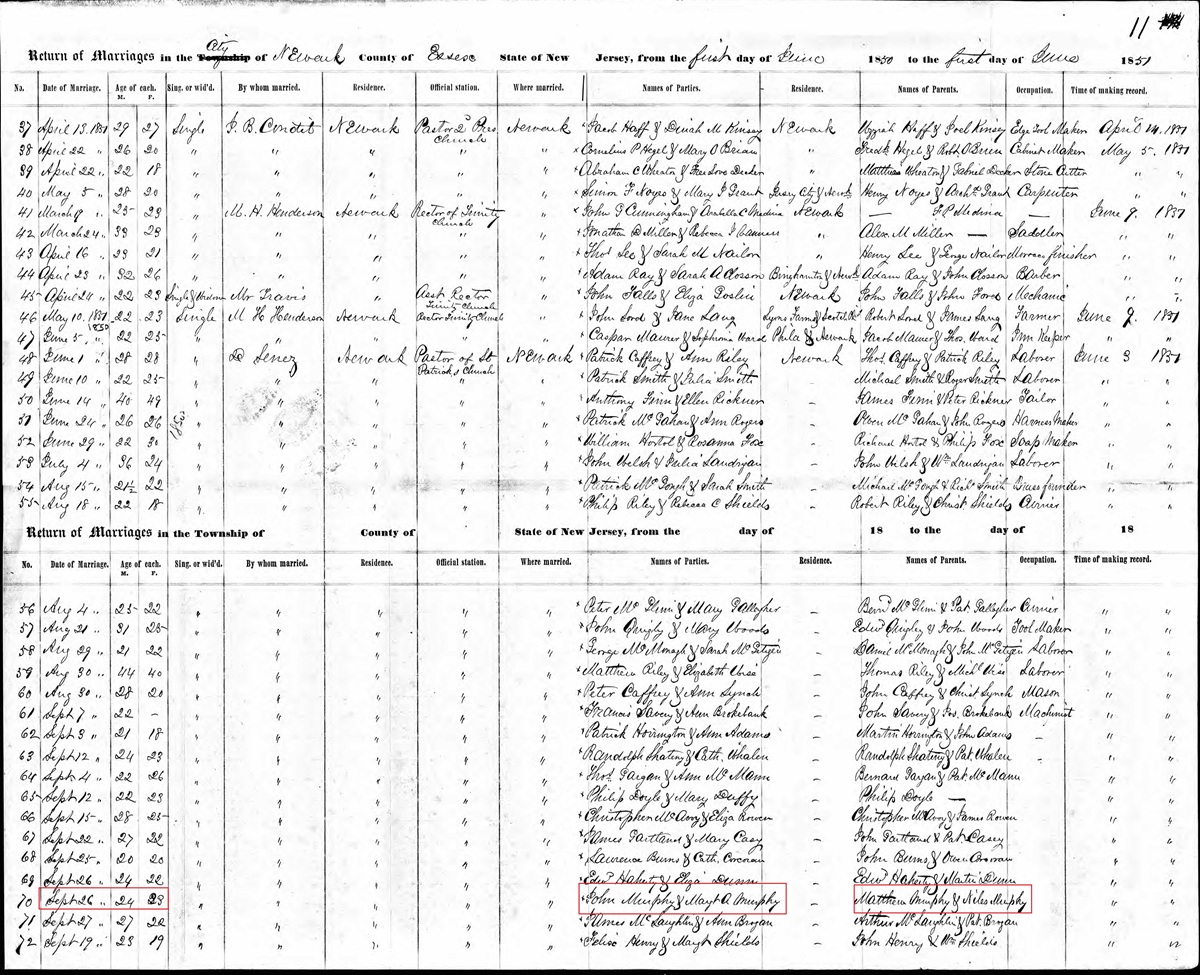 11
Return of Marriages in the Township City of Newark County of Essex State of New Jersey, from the first day of June 1850 to the first day of June 1851
No. Date of Marriage. Age of each. M. F. Sing. or wid'd. By whom married. Residence. Official station. Where married. Names of Parties. Residence. Names of Parents. Occupation. Time of making record.
37 April 13. 1851 29 27 Single Newark Pastor 2d Pres. Church Newark Jacob Haff & Dinah M Kinsey Newark Haff & Joel Kinsey Edge Tool Maker April 14. 1851
38 April 22 " 26 20 " " " " " Cornelius P Hegel & Mary O Brian " Fredk Hegel & Robt O Brian Cabinet Maker May 5. 1851
39 April 22 " 22 18 " " " " " Abraham C Wheaton & Free Love Decker " Matthias Wheaton & Gabriel Decker Stone Cutter " "
40 May 5 " 28 20 " " " " " Simon F Noyes & Mary J Grant Jersey City & Newk Henry Noyes & Archd Grant Carpenter " "
41 March 9 " 25 23 " M. H. Henderson Newark Rector of Trinity Church " John G Cunningham & Arabella C Medina Newark — F P Medina — June 9. 1851
42 March 24 " 33 23 " " " " " Jonathan D Miller & Rebecca J " Alex M Miller — Saddler " "
43 April 16 " 23 21 " " " " " Thos Lee & Sarah M Nailor " Henry Lee & George Nailor Morocco finisher " "
44 April 23 " 32 26 " " " " " Adam Ray & Sarah A Closson Binghamton & Newk Adam Ray & John Closson Barber " "
45 April 24 " 22 23 Single & Widow Mr Travis " Asst Rector Trinity Church " John Falls & Eliza Goslin Newark John Falls & John Ford Mechanic " "
46 May 10. 1851 22 23 Single M H Henderson Newark Rector Trinity Church " John Lord & Jane Lang Lyons Farms & Robert Lord & James Lang Farmer June 9. 1851
47 June 5 " 1850 22 25 " " " " " Caspar Maurer & Sophronia Ward Phila & Newark Jacob Maurer & Thos. Ward Inn Keeper " "
48 June 1 " 28 28 " L Senez Newark Pastor of St Patricks Church Newark Patrick Caffrey & Ann Riley Newark Thos. Caffrey & Patrick Riley Laborer June 3 1851
49 June 10 " 22 25 " " " " " Patrick Smith & Julia Smith – Michael Smith & Roger Smith Laborer " "
50 June 14 " 40 49 " " " " " Anthony Finn & Ellen Rickner – James Finn & Peter Rickner Tailor " "
51 June 24 " 26 26 1850 " " " " Patrick Mc Gahan & Ann Rogers – Owen Mc Gahan & John Rogers Harness Maker " "
52 June 29 " 22 30 " " " " " William Hortol & Rosanna Fox – Richard Hortol & Philip Fox Soap Maker " "
53 July 4 " 36 24 " " " " " John Welsh & Julia Landrigan – John Welsh & Wm Landrigan Laborer " "
54 Aug 15 " 21½ 22 " " " " " Patrick Mc Gough & Sarah Smith – Michael Mc Gough & Richd Smith Brass founder " "
55 Aug 18 " 22 18 " " " " " Philip Riley & Rebecca C Shields – Robert Riley & Christ. Shields Currier " "
Return of Marriages in the Township of County of State of New Jersey, from the day of 18 to the day of 18
No. Date of Marriage. Age of each. M. F. Sing. or wid'd. By whom married. Residence. Official station. Where married. Names of Parties. Residence. Names of Parents. Occupation. Time of making record.
56 Aug 4 " 25 22 " " " " " Peter Mc Glinn & Mary Gallagher – Bernd Mc Glinn & Pat. Gallagher Currier " "
57 Aug 21 " 31 25 " " " " " John Quigly & Mary Woods – Edwd Quigley & John Woods Tool Maker " "
58 Aug 29 " 21 22 " " " " " George Mc Monagh & Sarah Mc – Daniel Mc Monagh & John Mc Laborer " "
59 Aug 30 " 44 40 " " " " " Matthew Riley & Elizabeth – Thomas Riley & Michl Laborer " "
60 Aug 30 " 28 20 " " " " " Peter Caffrey & Ann Lynch – John Caffrey & Christ Lynch Mason " "
61 Sept 7 " 22 – " " " " " Francis Savery & Ann Brokebank – John Savery & Jos. Brokebank Machinist " "
62 Sept 3 " 21 18 " " " " " Patrick Horrington & Ann Adams – Martin Horrington & John Adams – " "
63 Sept 12 " 24 23 " " " " " Randolph & Cath. Whalen – Randolph & Pat. Whalen – " "
64 Sept 4 " 22 26 " " " " " Thos. Gargan & Ann Mc Mann – Bernard Gargan & Pat. Mc Mann " "
65 Sept 12 " 22 23 " " " " " Philip Doyle & Mary Duffy – Philip Doyle — " "
66 Sept 15 " 28 25 " " " " " Christopher Mc Avoy & Eliza Rowen – Christopher Mc Avoy & James Rowen " "
67 Sept 22 " 27 22 " " " " " James Partland & Mary Casy – John Partland & Pat. Casey " "
68 Sept 25 " 20 20 " " " " " Laurence Burns & Cath. Corcoran – John Burns & Owen Corcoran " "
69 Sept 26 " 24 22 " " " " " Edwd Hahert & Eliza Dunn – Edwd Haherty & Martin Dunn " "
70 Sept 26 " 24 23 " " " " " John Murphy & Magt A Murphy – Matthew Murphy & Niles Murphy " "
71 Sept 27 " 27 22 " " " " " James Mc Laughlin & Ann Brogan – Arthur Mc Laughlin & Pat. Brogan " "
72 Sept 19 " 23 19 " " " " " Felix Henry & Magt Shields – John Henry & Wm Shields " "